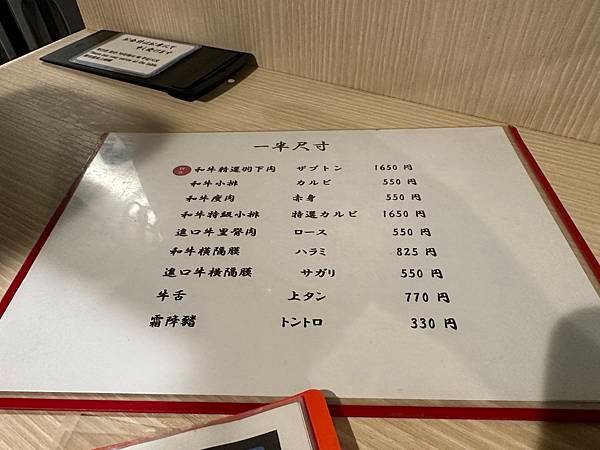 お会計はお席にて
承っております
一半尺寸
和牛精選羽下肉 ザブトン 1650 円
和牛小排 カルビ 550 円
和牛瘦肉 赤身 550 円
和牛特級小排 特選カルビ 1650 円
進口牛里脊肉 ロース 550 円
和牛橫隔膜 ハラミ 825 円
進口牛橫隔膜 サガリ 550 円
牛舌 上タン 770 円
霜降豬 トントロ 330 円